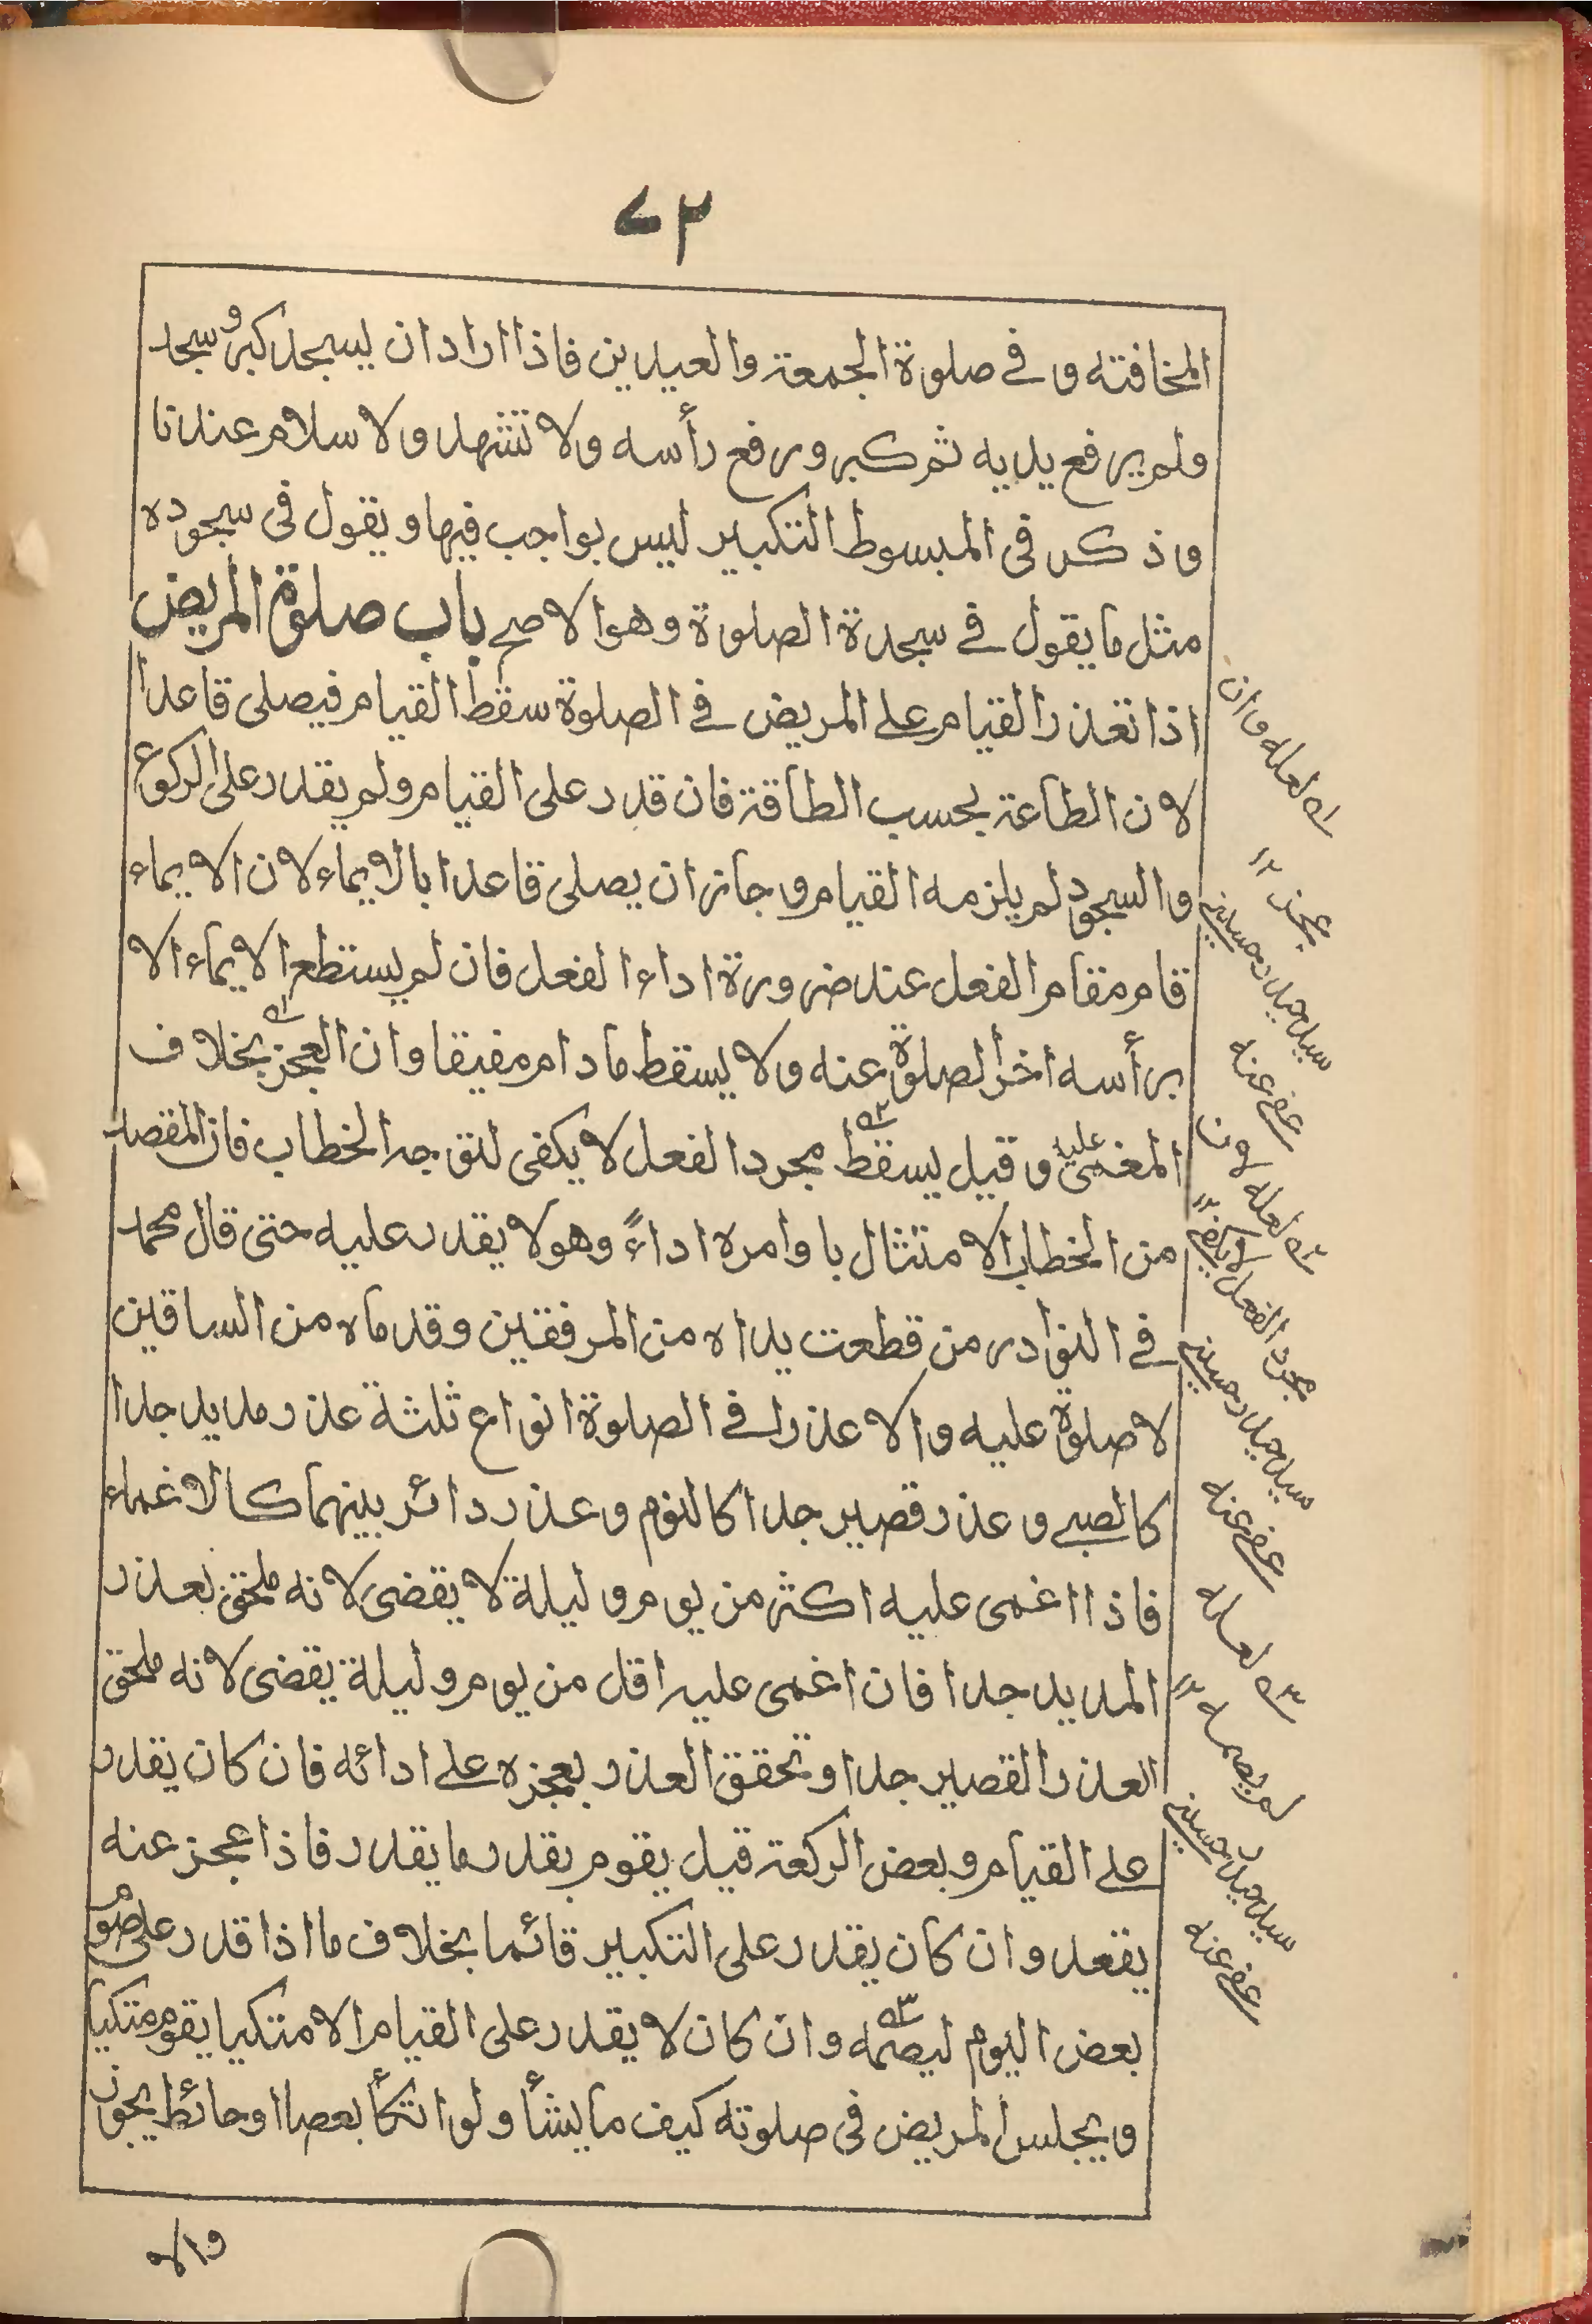 ٧٢
المخافته و في صلوة الجمعة والعيدين فاذا اراد ان يسجد كبر و سجد
ولم يرفع يديه ثم كبر ورفع رأسه ولا تشهد ولا سلام عندنا
وذكر في المبسوط التكبير ليس بواجب فيها ويقول في سجوده
مثل ما يقول في سجدة الصلوة وهو الاصح باب صلوة المريض
اذا تعذر القيام على المريض في الصلوة سقط القيام فيصلى قاعدا
لان الطاعة بحسب الطاقة فان قدر على القيام ولم يقدر على الركوع
والسجود لم يلزمه القيام وجاز ان يصلى قاعدا بالايماء لان الايماء
قام مقام الفعل عند ضرورة اداء الفعل فان لم يستطع الايماء الا
برأسه اخر الصلوة عنه ولا يسقط ما دام مفيقا وان العجز ١ه بخلاف
المغمى عليه وقيل يسقط ٢ه مجرد الفعل لا يكفى لتوجه الخطاب فان المقصد
من الخطاب الامتثال باوامره اداءً وهو لا يقدر عليه حتى قال محمد
في النوادر من قطعت يداه من المرفقين وقدماه من الساقين
لا صلوة عليه والاعذار في الصلوة انواع ثلثة عذر مديد جدا
كالصبى وعذر قصير جدا كالنوم وعذر دائر بينهما كالاغماء
فاذا اغمى عليه اكثر من يوم وليلة لا يقضى لانه ملحق بعذر
المديد جدا فان اغمى عليه اقل من يوم وليلة يقضى لانه ملحق
العذر القصير جدا وتحقق العذر بعجزه على ادائه فان كان يقدر
على القيام وبعض الركعة قيل يقوم بقدر ما يقدر فاذا عجز عنه
يقعد وان كان يقدر على التكبير قائما بخلاف ما اذا قدر على صوم
بعض اليوم ليصمه ٣ه وان كان لا يقدر على القيام الا متكيا يقوم متكيا
ويجلس المريض في صلوته كيف ما يشأ ولو اتكأ بعصا او حائط يجوز
١ه لعله وان
عجز ١٢
سيد حيدر حسينى
عفى عنه
٢ه لعله لان
مجرد الفعل لا يكفى ١٢
سيد حيدر حسينى
عفى عنه
٣ه لعله
لم يصمه ١٢
سيد حيدر حسينى
عفى عنه